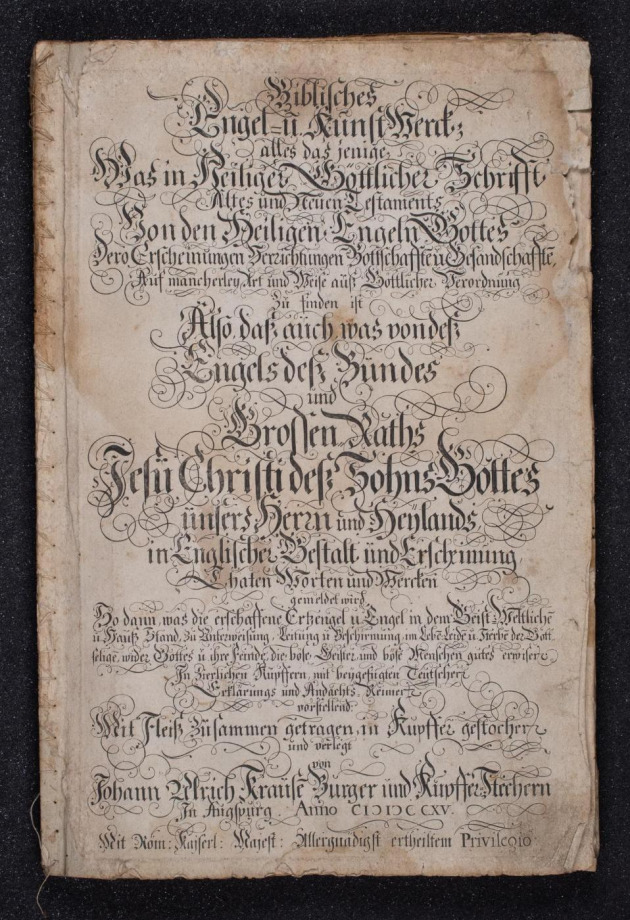 Biblisches
Engel- u. Kunst Werck;
alles das jenige,
Was in Heiliger Göttlicher Schrifft
Altes und Neuen Testaments
Von den Heiligen Engeln Gottes
dero Erscheinungen Verrichtungen Bottschafften u. Gesandschafften,
Auf mancherley Art und Weise auß Göttlicher Verordnung
zu finden ist
Also daß auch was von deß
Engels deß Bundes
und
Grossen Raths
Jesu Christi deß Sohns Gottes
unsers Herrn und Heylands
in Englischer Gestalt und Erscheinung
Thaten Worten und Wercken
gemeldet wird,
So dann, was die erschaffene Ertzengel u. Engel in dem Geist- Weltliche
u. Hauß Stand, zu Unterweisung, Leitung u. Beschirmung, im Lebe Leide u. Sterbe der Gott
selige, wider Gottes u. ihre Feinde, die böse Geister und böse Menschen gutes erwisen
In zierlichen Kupffern, mit beygefügten Teutschen
Erklärungs und Andachts Reimen
vorstellend.
Mit Fleiß zusammen getragen, in Kupffer gestochen
und verlegt
von
Johann Ulrich Krauße Burger und Kupffer Stechern
In Augspurg Anno CIↃIↃCCXV.
Mit Röm: Kaiserl: Majest: Allergnädigst ertheiltem Privilegio